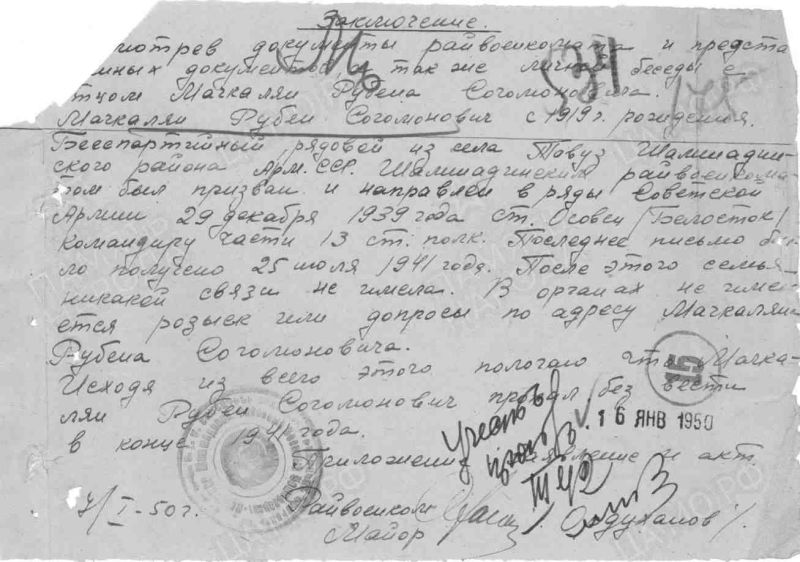 Заключение.
мотрев документы райвоенкомата и предста
нных документов, а так же личной беседы с
тцом Мачкалян Рубена Согомоновича.
Мачкалян Рубен Согомонович с 1919 г. рождения.
Беспартийный рядовой из села Товуз Шамшадин-
ского района Арм. ССР. Шамшадинским райвоенкома-
том был призван и направлен в ряды Советской
Армии 29 декабря 1939 года ст. Осовец /Белосток/
командиру части 13 ст. полк. Последнее письмо бы-
ло получено 25 июля 1941 года. После этого семья
никакой связи не имела. В органах не име-
ется розыск или допросы по адресу Мачкалян
Рубена Согомоновича.
Исходя из всего этого пологаю что Мачка-
лян Рубен Согомонович пропал без вести
в конце 1941 года.
15
16 ЯНВ 1950
Приложение: заявление и акт.
7/I-50 г. Райвоенком
Майор